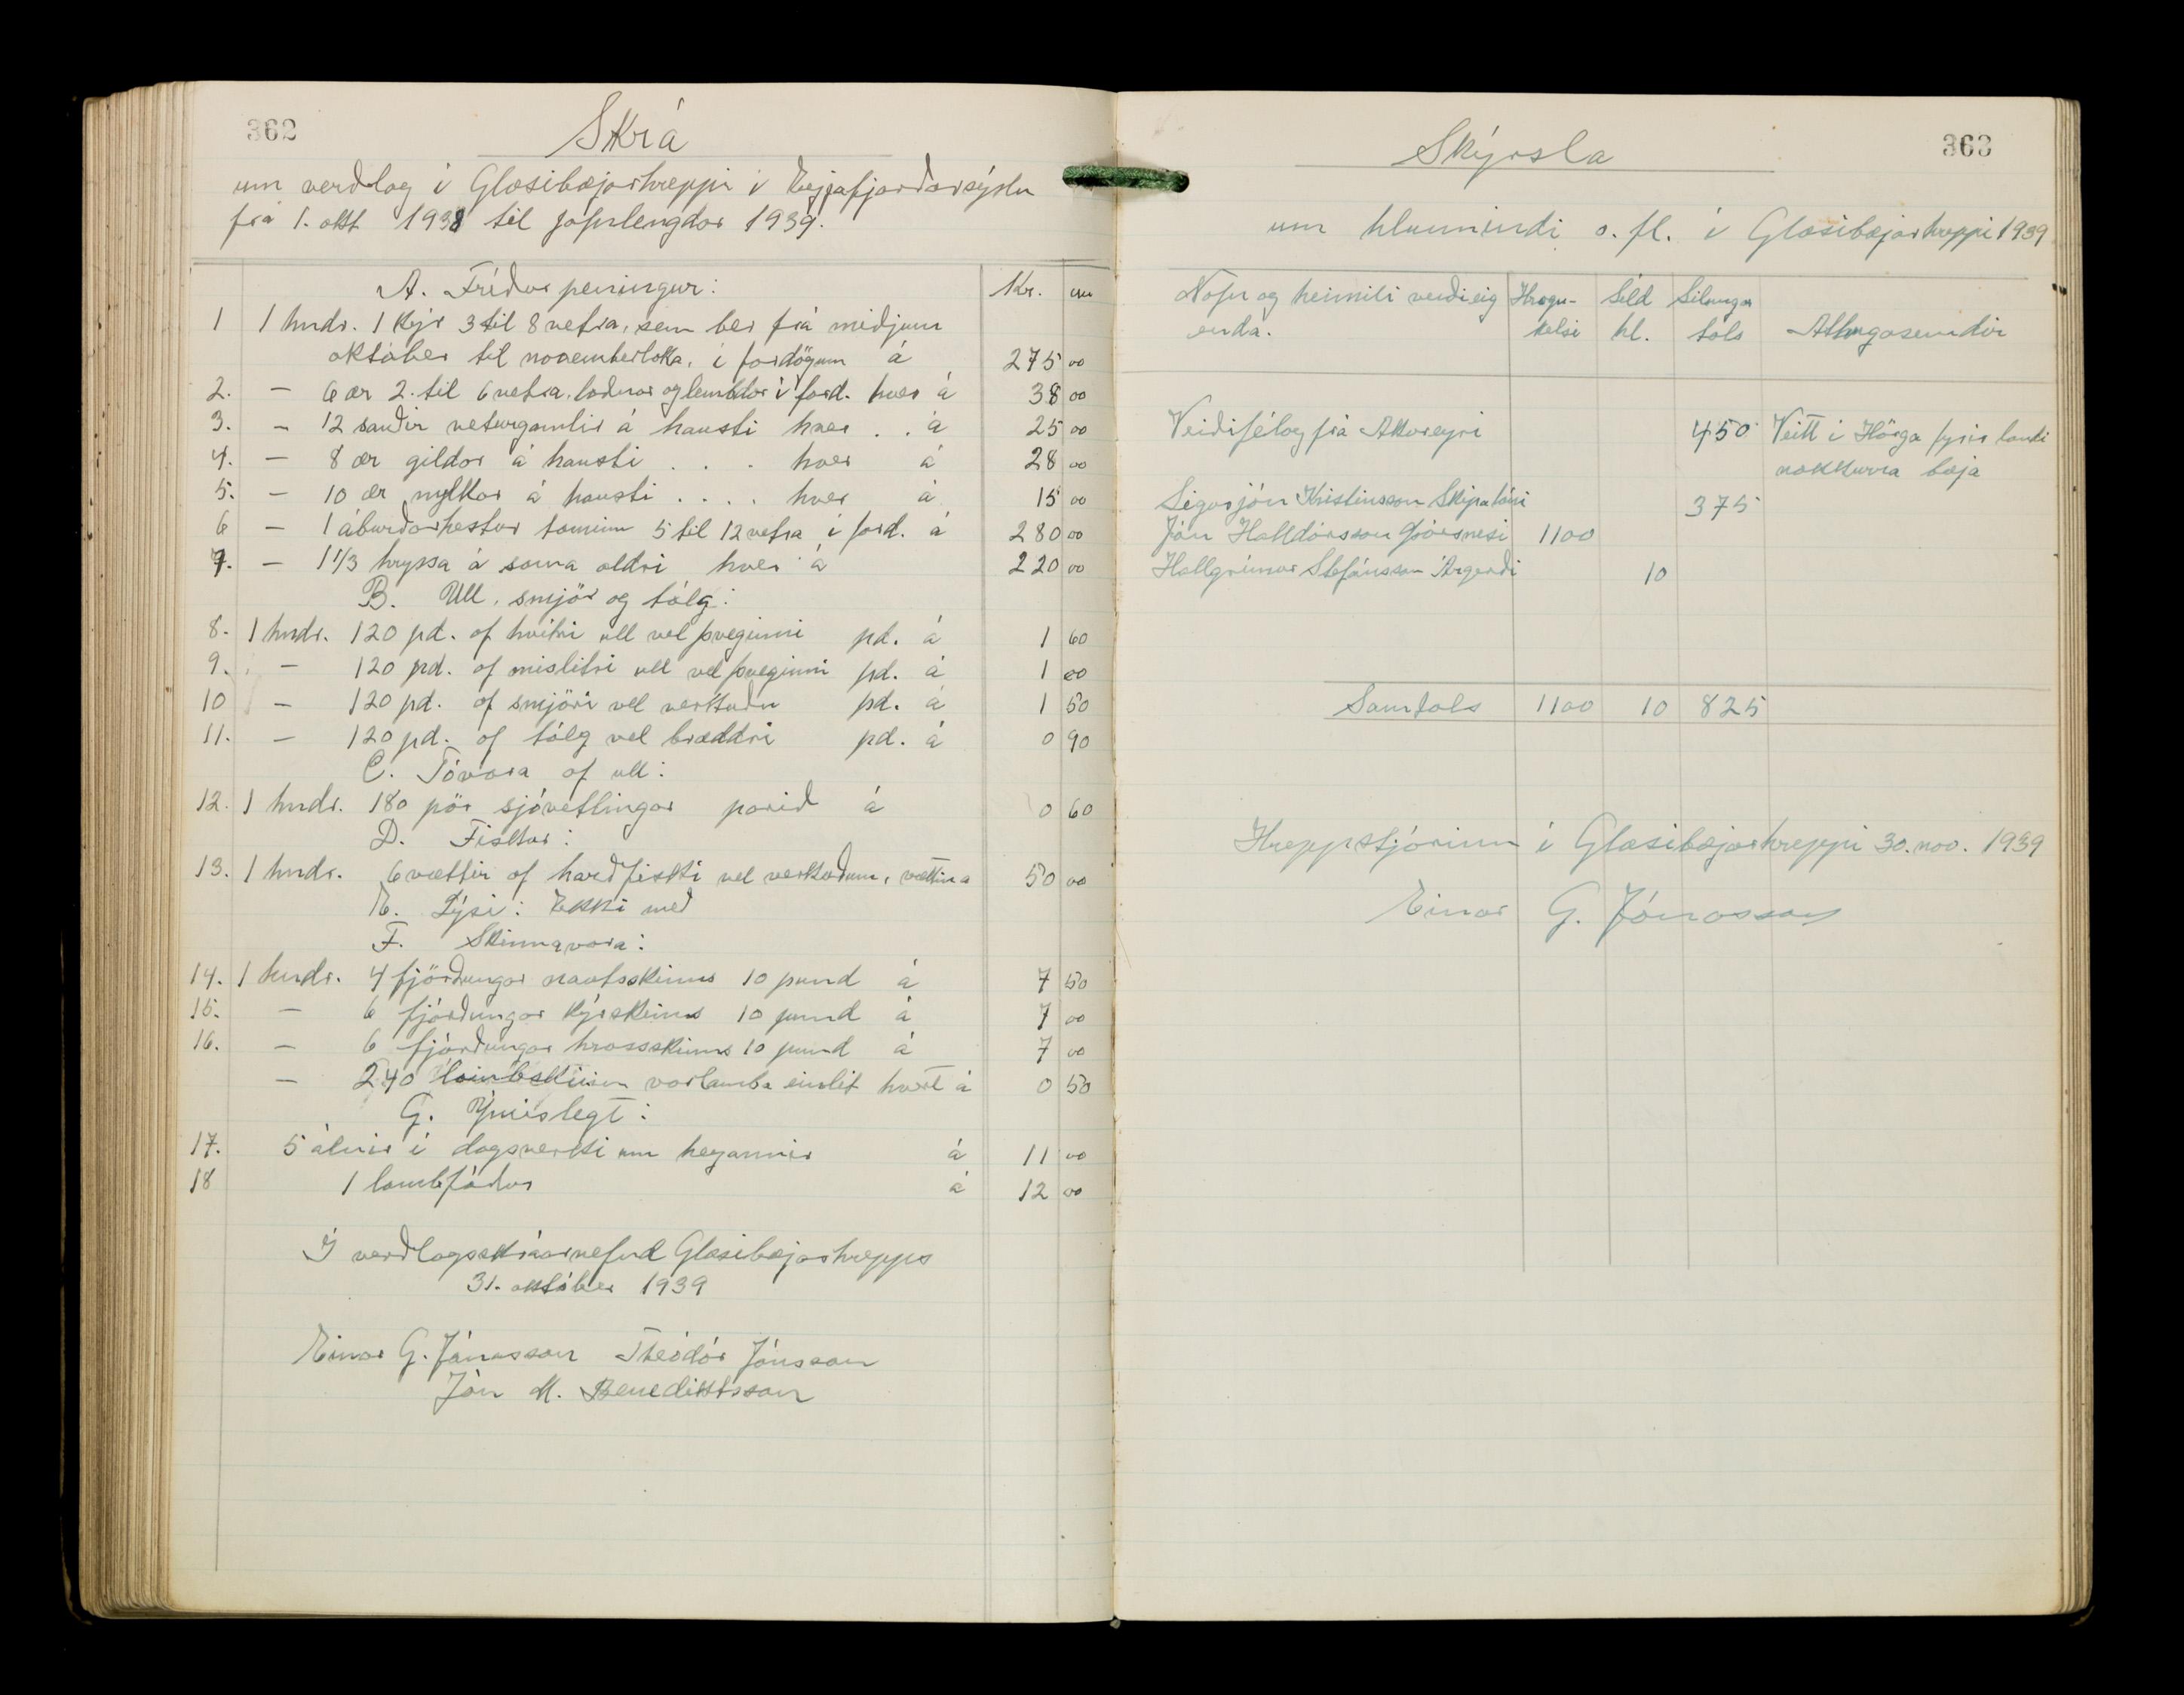 362
Skrá
um verðlag í Glæsibæjarhreppi í Eyjafjarðarsýslu
frá 1. okt 1938 til jafnlengdar 1939.
A. Fríður peningur: Kr. au
1 1 hndr. 1 kýr 3 til 8 vetra, sem ber frá miðjum
október til nóvemberloka, í fardögum á 275 00
2. — 6 ær 2. til 6 vetra, loðnar og lembdar í fard. hver á 38 00
3. — 12 sauðir veturgamlir á hausti hver . . á 25 00
4. — 8 ær gildar á hausti . . . hver á 28 00
5. — 10 ær mylkar á hausti . . . . hver á 15 00
6 — 1 áburðarhestur taminn 5 til 12 vetra í fard. á 280 00
7. — 1 1/3 hryssa á sama aldri hver á 220 00
B. Ull, smjör og tólg:
8. 1 hndr. 120 pd. af hvítri ull vel þveginni pd. á 1 60
9. — 120 pd. af mislitri ull vel þveginni pd. á 1 00
10 — 120 pd. af smjöri vel verkuðu pd. á 1 50
11. — 120 pd. af tólg vel bræddri pd. á 0 90
C. Tóvara af ull:
12. 1 hndr. 180 pör sjóvetlingar parið á 0 60
D. Fiskur:
13. 1 hndr. 6 vættir af harðfiski vel verkuðum, vættin á 50 00
E. Lýsi: Ekki með
F. Skinnavara:
14. 1 hndr. 4 fjórðungar nautsskinns 10 pund á 7 50
15. — 6 fjórðungar kýrskinns 10 pund á 7 00
16. — 6 fjórðungar hrossskinns 10 pund á 7 00
— 240 lambskinn vorlamba einlit hvert á 0 50
G. Ýmislegt:
17. 5 álnir í dagsverki um heyannir á 11 00
18 1 lambsfóður á 12 00
Í verðlagsskrárnefnd Glæsibæjarhrepps
31. október 1939
Einar G. Jónasson Theódór Jónsson
Jón M. Benediktsson
363
Skýrsla
um hlunnindi o. fl. í Glæsibæjarhreppi 1939
Nafn og heimili veiðieig Hrogn- Síld Silungur
enda. kelsi hl. tals Athugasemdir
Veiðifélag frá Akureyri 450 Veitt í Hörgá fyrir landi
nokkurra bæja
Sigurjón Kristinsson Skipalóni 375
Jón Halldórsson Gásanesi 1100
Hallgrímur Stefánsson Árgerði 10
Samtals 1100 10 825
Hreppstjórinn í Glæsibæjarhreppi 30. nov. 1939
Einar G. Jónasson